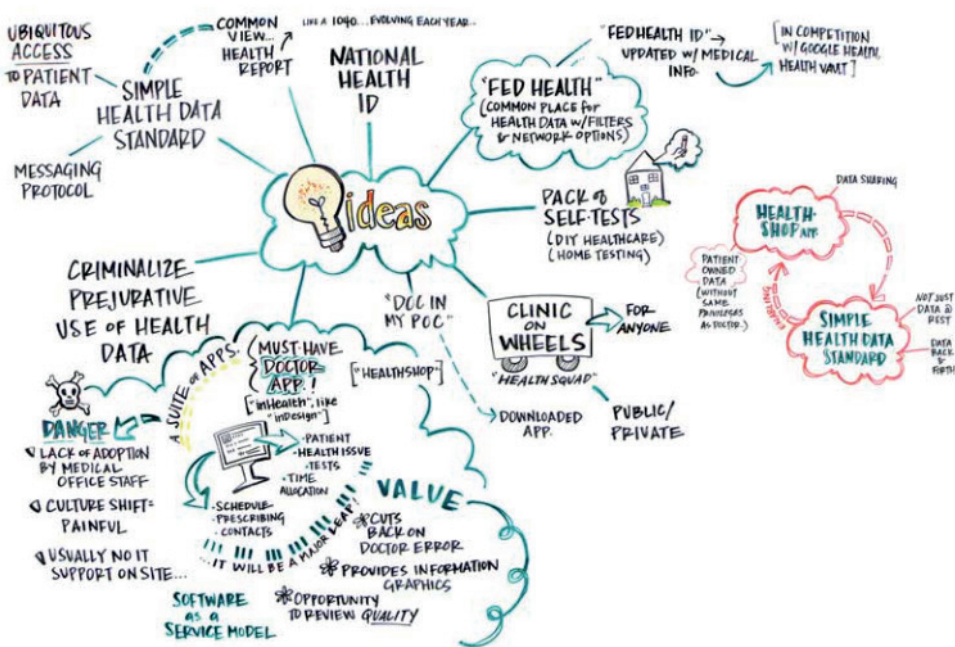 UBIQUITOUS
ACCESS
TO PATIENT
DATA
SIMPLE
HEALTH DATA
STANDARD
MESSAGING
PROTOCOL
COMMON
VIEW...
HEALTH
REPORT
LIKE A 1040...EVOLVING EACH YEAR..
NATIONAL
HEALTH
ID
"FED HEALTH"
(COMMON PLACE for
HEALTH DATA W/FILTERS
& NETWORK OPTIONS)
"FED HEALTH ID"→
UPDATED W/ MEDICAL
INFO.
[IN COMPETITION
W/ GOOGLE HEALTH,
HEALTH VAULT]
ideas
PACK of
SELF-TESTS
(DIY HEALTHCARE)
(HOME TESTING)
CLINIC
ON
WHEELS
"HEALTH SQUAD"
FOR
ANYONE
PUBLIC/
PRIVATE
"DOC IN
MY POC"
DOWNLOADED
APP.
CRIMINALIZE
PREJURATIVE
USE OF HEALTH
DATA
A SUITE of APPS.
(MUST-HAVE
DOCTOR
APP.!
["inHealth", like
"inDesign"]
["HEALTHSHOP"]
DANGER
LACK OF ADOPTION
BY MEDICAL
OFFICE STAFF
CULTURE SHIFT=
PAINFUL
USUALLY NO IT
SUPPORT ON SITE...
• PATIENT
• HEALTH ISSUE
• TESTS
• TIME
ALLOCATION
• SCHEDULE
• PRESCRIBING
• CONTACTS
...IT WILL BE A MAJOR LEAP!
SOFTWARE
as a
SERVICE MODEL
VALUE
CUTS
BACK ON
DOCTOR ERROR
PROVIDES INFORMATION
GRAPHICS
OPPORTUNITY
TO REVIEW QUALITY
DATA SHARING
HEALTH-
SHOP APP.
PATIENT
OWNED
DATA
(WITHOUT
SAME
PRIVILEGES
AS DOCTOR.)
SIMPLE
HEALTH DATA
STANDARD
NOT JUST
DATA @
REST
DATA
BACK &
FORTH